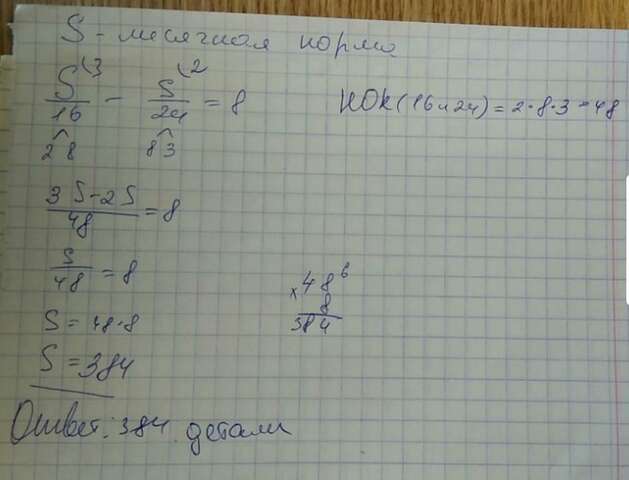 S - месячная норма
S/16 (3 - S/24 (2 = 8
НОК(16 и 24) = 2·8·3 = 48
2 8   8 3
3S-2S/48 = 8
S/48 = 8
S = 48·8
S = 384
× 48 6
8
384
Ответ: 384 детали